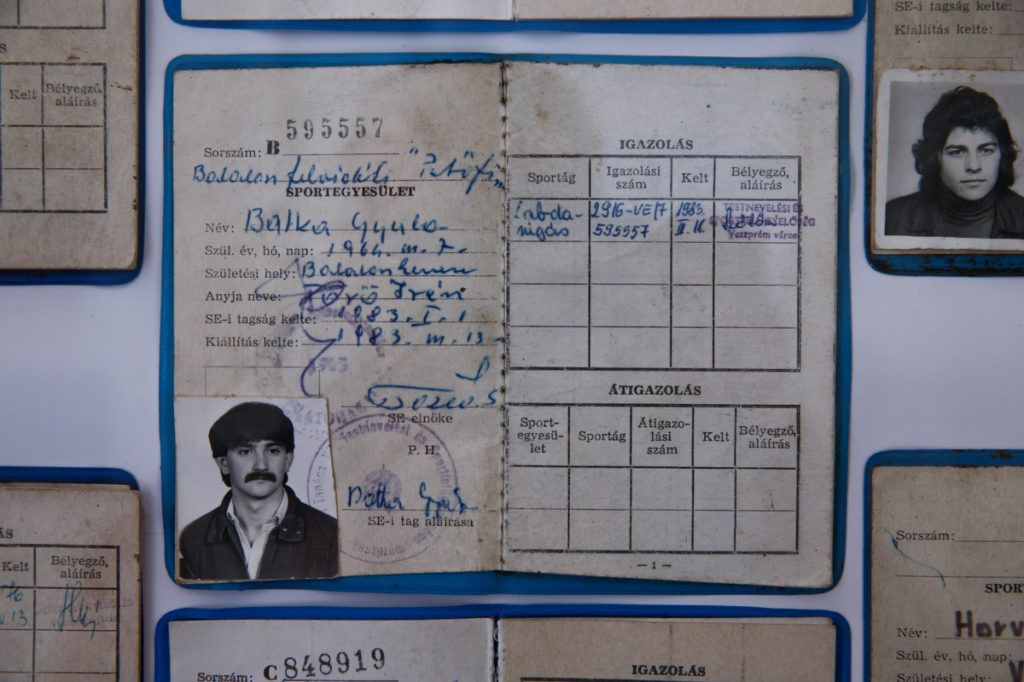 Kelt
Bélyegző,
aláírás
SE-i tagság kelte:
Kiállítás kelte:
Sorszám: B 595557
Balatonfelvidéki "Petőfi"
SPORTEGYESÜLET
Név: Batka Gyula
Szül. év, hó, nap: 1964. III. 7.
Születési hely:
Anyja neve: Irén
SE-i tagság kelte: 1983. I. 1
Kiállítás kelte: 1983. III. 13
SE elnöke
P. H.
SE-i tag aláírása
IGAZOLÁS
Sportág
Igazolási
szám
Kelt
Bélyegző,
aláírás
Labda-
rúgás
2916-VE/7
595557
1983
TESTNEVELÉSI ÉS
Veszprém város
ÁTIGAZOLÁS
Sport-
egyesü-
let
Sportág
Átigazo-
lási
szám
Kelt
Bélyegző,
aláírás
— 1 —
ÁS
Kelt
Bélyegző,
aláírás
Sorszám:
SPOR
Név: Horv
Szül. év, hó, nap:
Születési hely:
Sorszám: C 848919
IGAZOLÁS